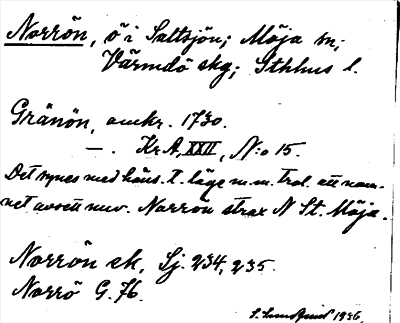 Norrön, ö i Saltsjön; Möja sn;
Värmdö skg; Sthlms l.
Gränön, omkr. 1730.
—. Kr A, XXII, N:o 15.
Det synes med häns. t. läge m.m. trol. att nam-
net avsett nuv. Norrön strax N St. Möja.
Norrön sk. Sj. 234, 235.
Norrö G. 76.
1936.